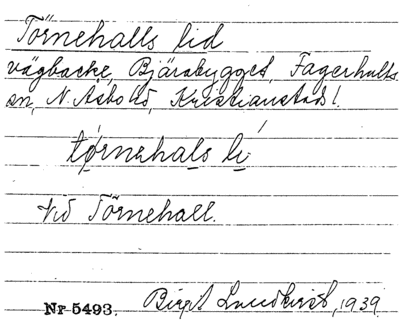 Törnehalls lid
vägbacke, Bjärabygget, Fagerhults
sn, N. Åsbo hd, Kristianstads l.
tø̣rnəhals li
Vid Törnehall.
Nr 5493. Birgit Lundkvist, 1939